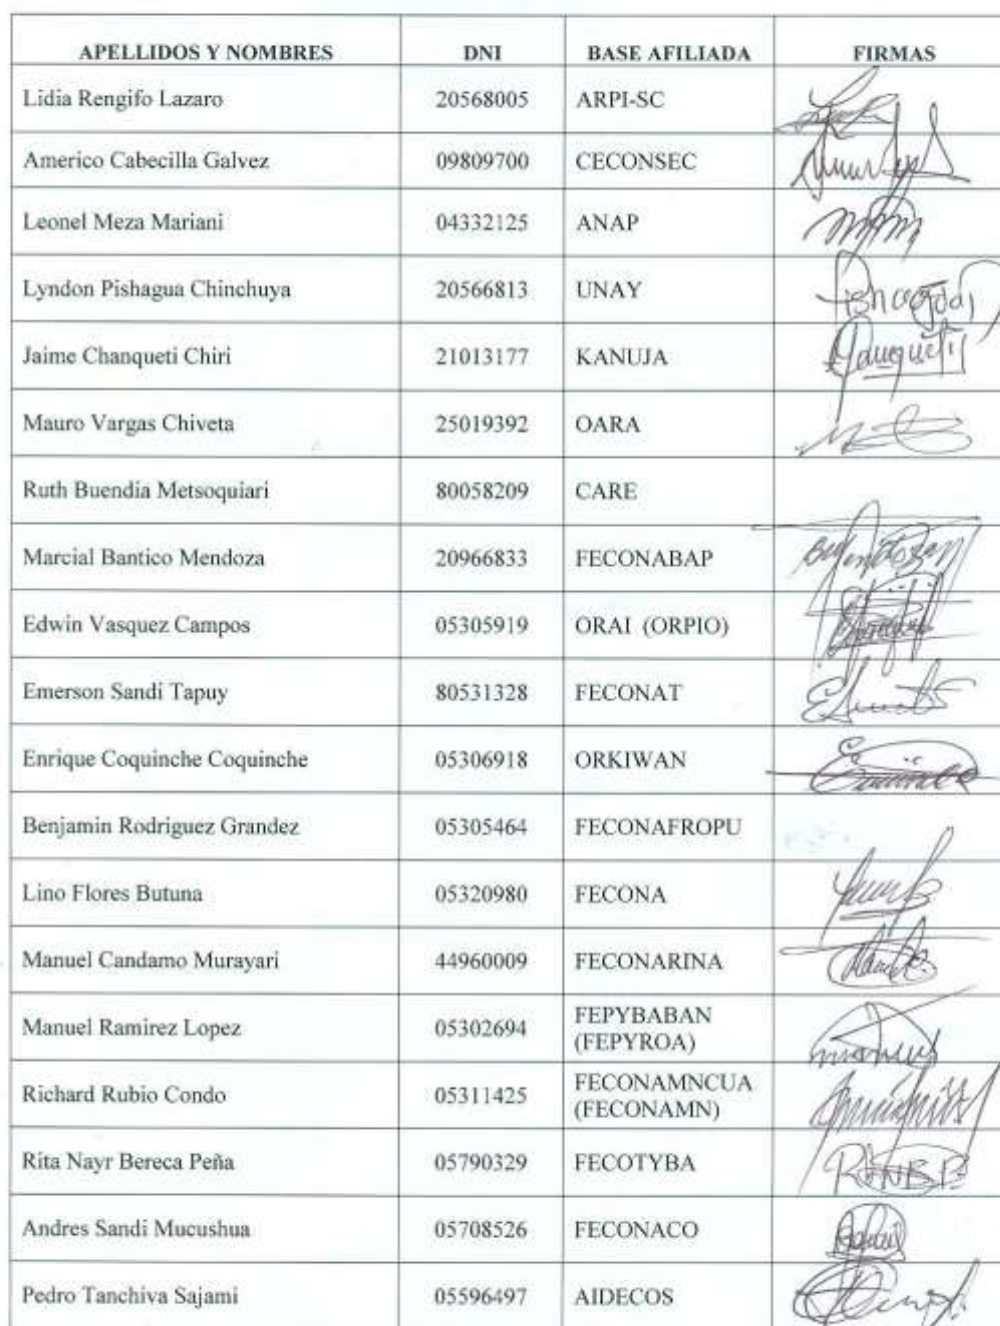 APELLIDOS Y NOMBRES DNI BASE AFILIADA FIRMAS
Lidia Rengifo Lazaro 20568005 ARPI-SC
Americo Cabecilla Galvez 09809700 CECONSEC
Leonel Meza Mariani 04332125 ANAP
Lyndon Pishagua Chinchuya 20566813 UNAY
Jaime Chanqueti Chiri 21013177 KANUJA
Mauro Vargas Chiveta 25019392 OARA
Ruth Buendia Metsoquiari 80058209 CARE
Marcial Bantico Mendoza 20966833 FECONABAP
Edwin Vasquez Campos 05305919 ORAI (ORPIO)
Emerson Sandi Tapuy 80531328 FECONAT
Enrique Coquinche Coquinche 05306918 ORKIWAN
Benjamin Rodriguez Grandez 05305464 FECONAFROPU
Lino Flores Butuna 05320980 FECONA
Manuel Candamo Murayari 44960009 FECONARINA
Manuel Ramirez Lopez 05302694 FEPYBABAN
(FEPYROA)
Richard Rubio Condo 05311425 FECONAMNCUA
(FECONAMN)
Rita Nayr Bereca Peña 05790329 FECOTYBA
Andres Sandi Mucushua 05708526 FECONACO
Pedro Tanchiva Sajami 05596497 AIDECOS